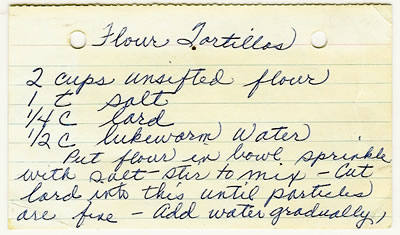 Flour Tortillas
2 cups unsifted flour
1 t salt
1/4 c lard
1/2 c lukewarm water
Put flour in bowl sprinkle
with salt - stir to mix - Cut
lard into this until particles
are fine - Add water gradually,